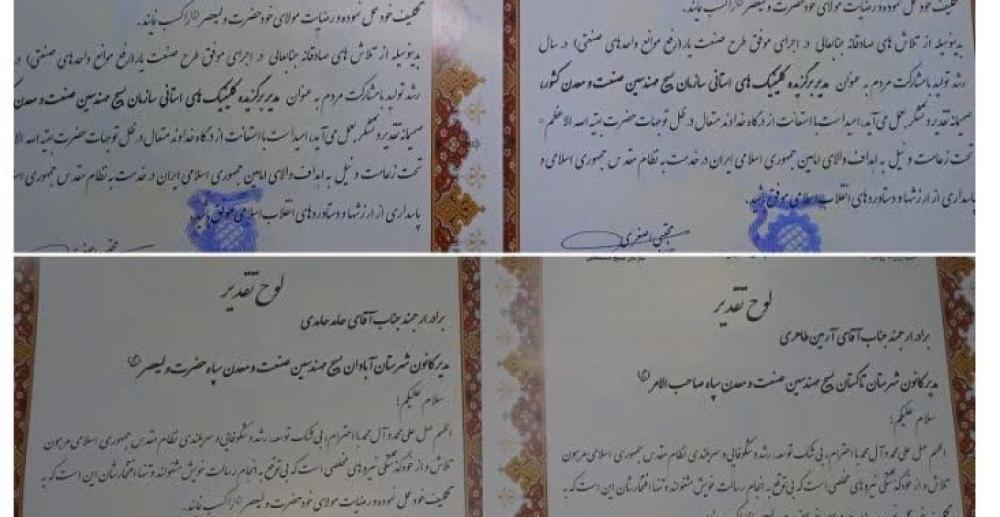 تکلیف خود عمل نموده و رضایت مولای خود حضرت ولیعصر (عج) را کسب نمایند.
بدینوسیله از تلاش های صادقانه جنابعالی در اجرای موفق طرح صنعت یار (رفع موانع واحدهای صنعتی) در
رشد تولید با مشارکت مردم به عنوان مدیر برگزیده کلینیک های استانی سازمان بسیج مهندسین صنعت و معدن
صمیمانه تقدیر و تشکر بعمل می آید، امید است با استعانت از درگاه خداوند متعال در ظل توجهات حضرت بقیه اله الا
تحت زعامت و نیل به اهداف والای امامین جمهوری اسلامی ایران در خدمت به نظام مقدس جمهوری اس
پاسداری از ارزشها و دستاوردهای انقلاب اسلامی موفق باشید.
مجتبی اصغری
تکلیف خود عمل نموده و رضایت مولای خود حضرت ولیعصر (عج) را کسب نمایند.
بدینوسیله از تلاش های صادقانه جنابعالی در اجرای موفق طرح صنعت یار (رفع موانع واحدهای صنعتی) در سال
رشد تولید با مشارکت مردم به عنوان مدیر برگزیده کلینیک های استانی سازمان بسیج مهندسین صنعت و معدن کشور،
صمیمانه تقدیر و تشکر بعمل می آید، امید است با استعانت از درگاه خداوند متعال در ظل توجهات حضرت بقیه اله الاعظم
تحت زعامت و نیل به اهداف والای امامین جمهوری اسلامی ایران در خدمت به نظام مقدس جمهوری اسلامی و
پاسداری از ارزشها و دستاوردهای انقلاب اسلامی موفق باشید.
مجتبی اصغری
لوح تقدیر
برادر ارجمند جناب آقای حامد حامدی
مدیر کانون شهرستان آبادان بسیج مهندسین صنعت و معدن سپاه حضرت ولیعصر (عج)
سلام علیکم؛
اللهم صل علی محمد و آل محمد با احترام، بی شک توسعه، رشد و شکوفایی و سربلندی نظام مقدس جمهوری اسلامی مرهون
تلاش و از خودگذشتگی نیروهای مخلصی است که بی توقع به انجام رسالت خویش مشغولند و تنها افتخارشان این است که به
تکلیف خود عمل نموده و رضایت مولای خود حضرت ولیعصر (عج) را کسب نمایند.
لوح تقدیر
برادر ارجمند جناب آقای آرمین طاهری
مدیر کانون شهرستان تاکستان بسیج مهندسین صنعت و معدن سپاه صاحب الامر (عج)
سلام علیکم؛
اللهم صل علی محمد و آل محمد با احترام، بی شک توسعه، رشد و شکوفایی و سربلندی نظام مقدس جمهوری اسلامی مرهون
تلاش و از خودگذشتگی نیروهای مخلصی است که بی توقع به انجام رسالت خویش مشغولند و تنها افتخارشان این است که به